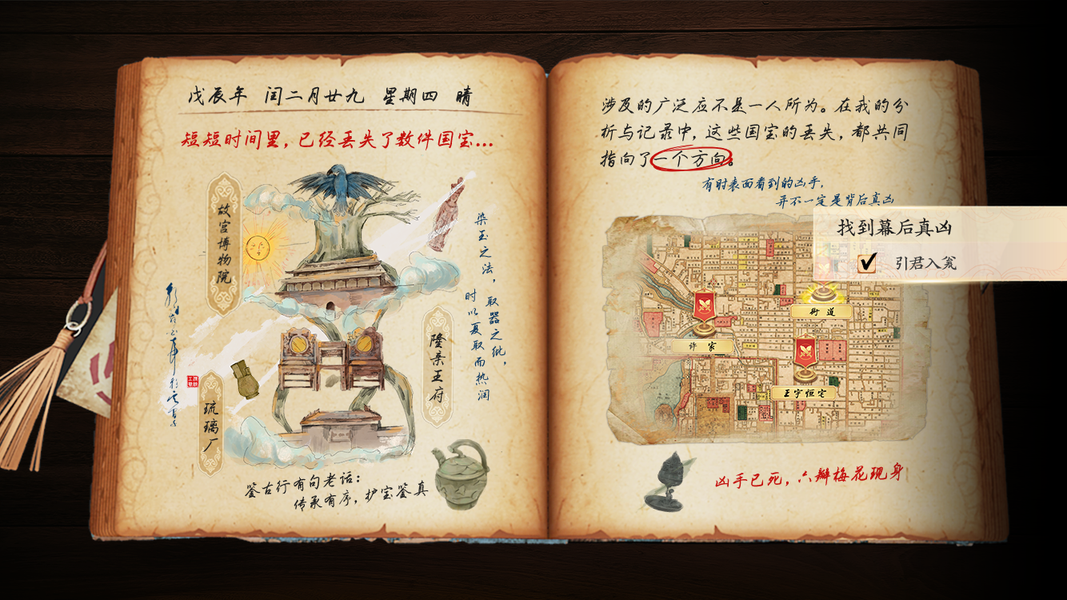 戊辰年 闰二月廿九 星期四 晴
短短时间里，已经丢失了数件国宝...
故宫博物院
染玉之法，取器之纰，
时以夏取而热润
隆亲王府
琉璃厂
鉴古行有句老话：
传承有序，护宝鉴真
涉及的广泛应不是一人所为。在我的分
析与记录中，这些国宝的丢失，都共同
指向了一个方向。
有时表面看到的凶手，
并不一定是背后真凶
找到幕后真凶
引君入瓮
街道
许家
王字恒宅
凶手已死，六瓣梅花现身